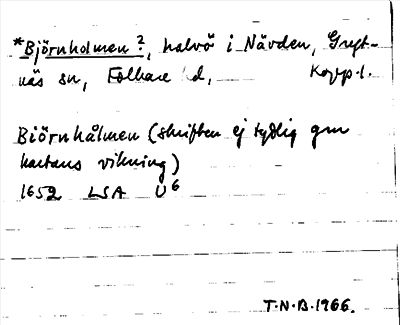 *Björnholmen?, halvö i Nävden, Gryt-
näs sn, Folkare d, Kopp.l.
Biörnhålmen (skriften ej tydlig gm
kartans vikning)
1652 LSA U6
T.N.B.1966.